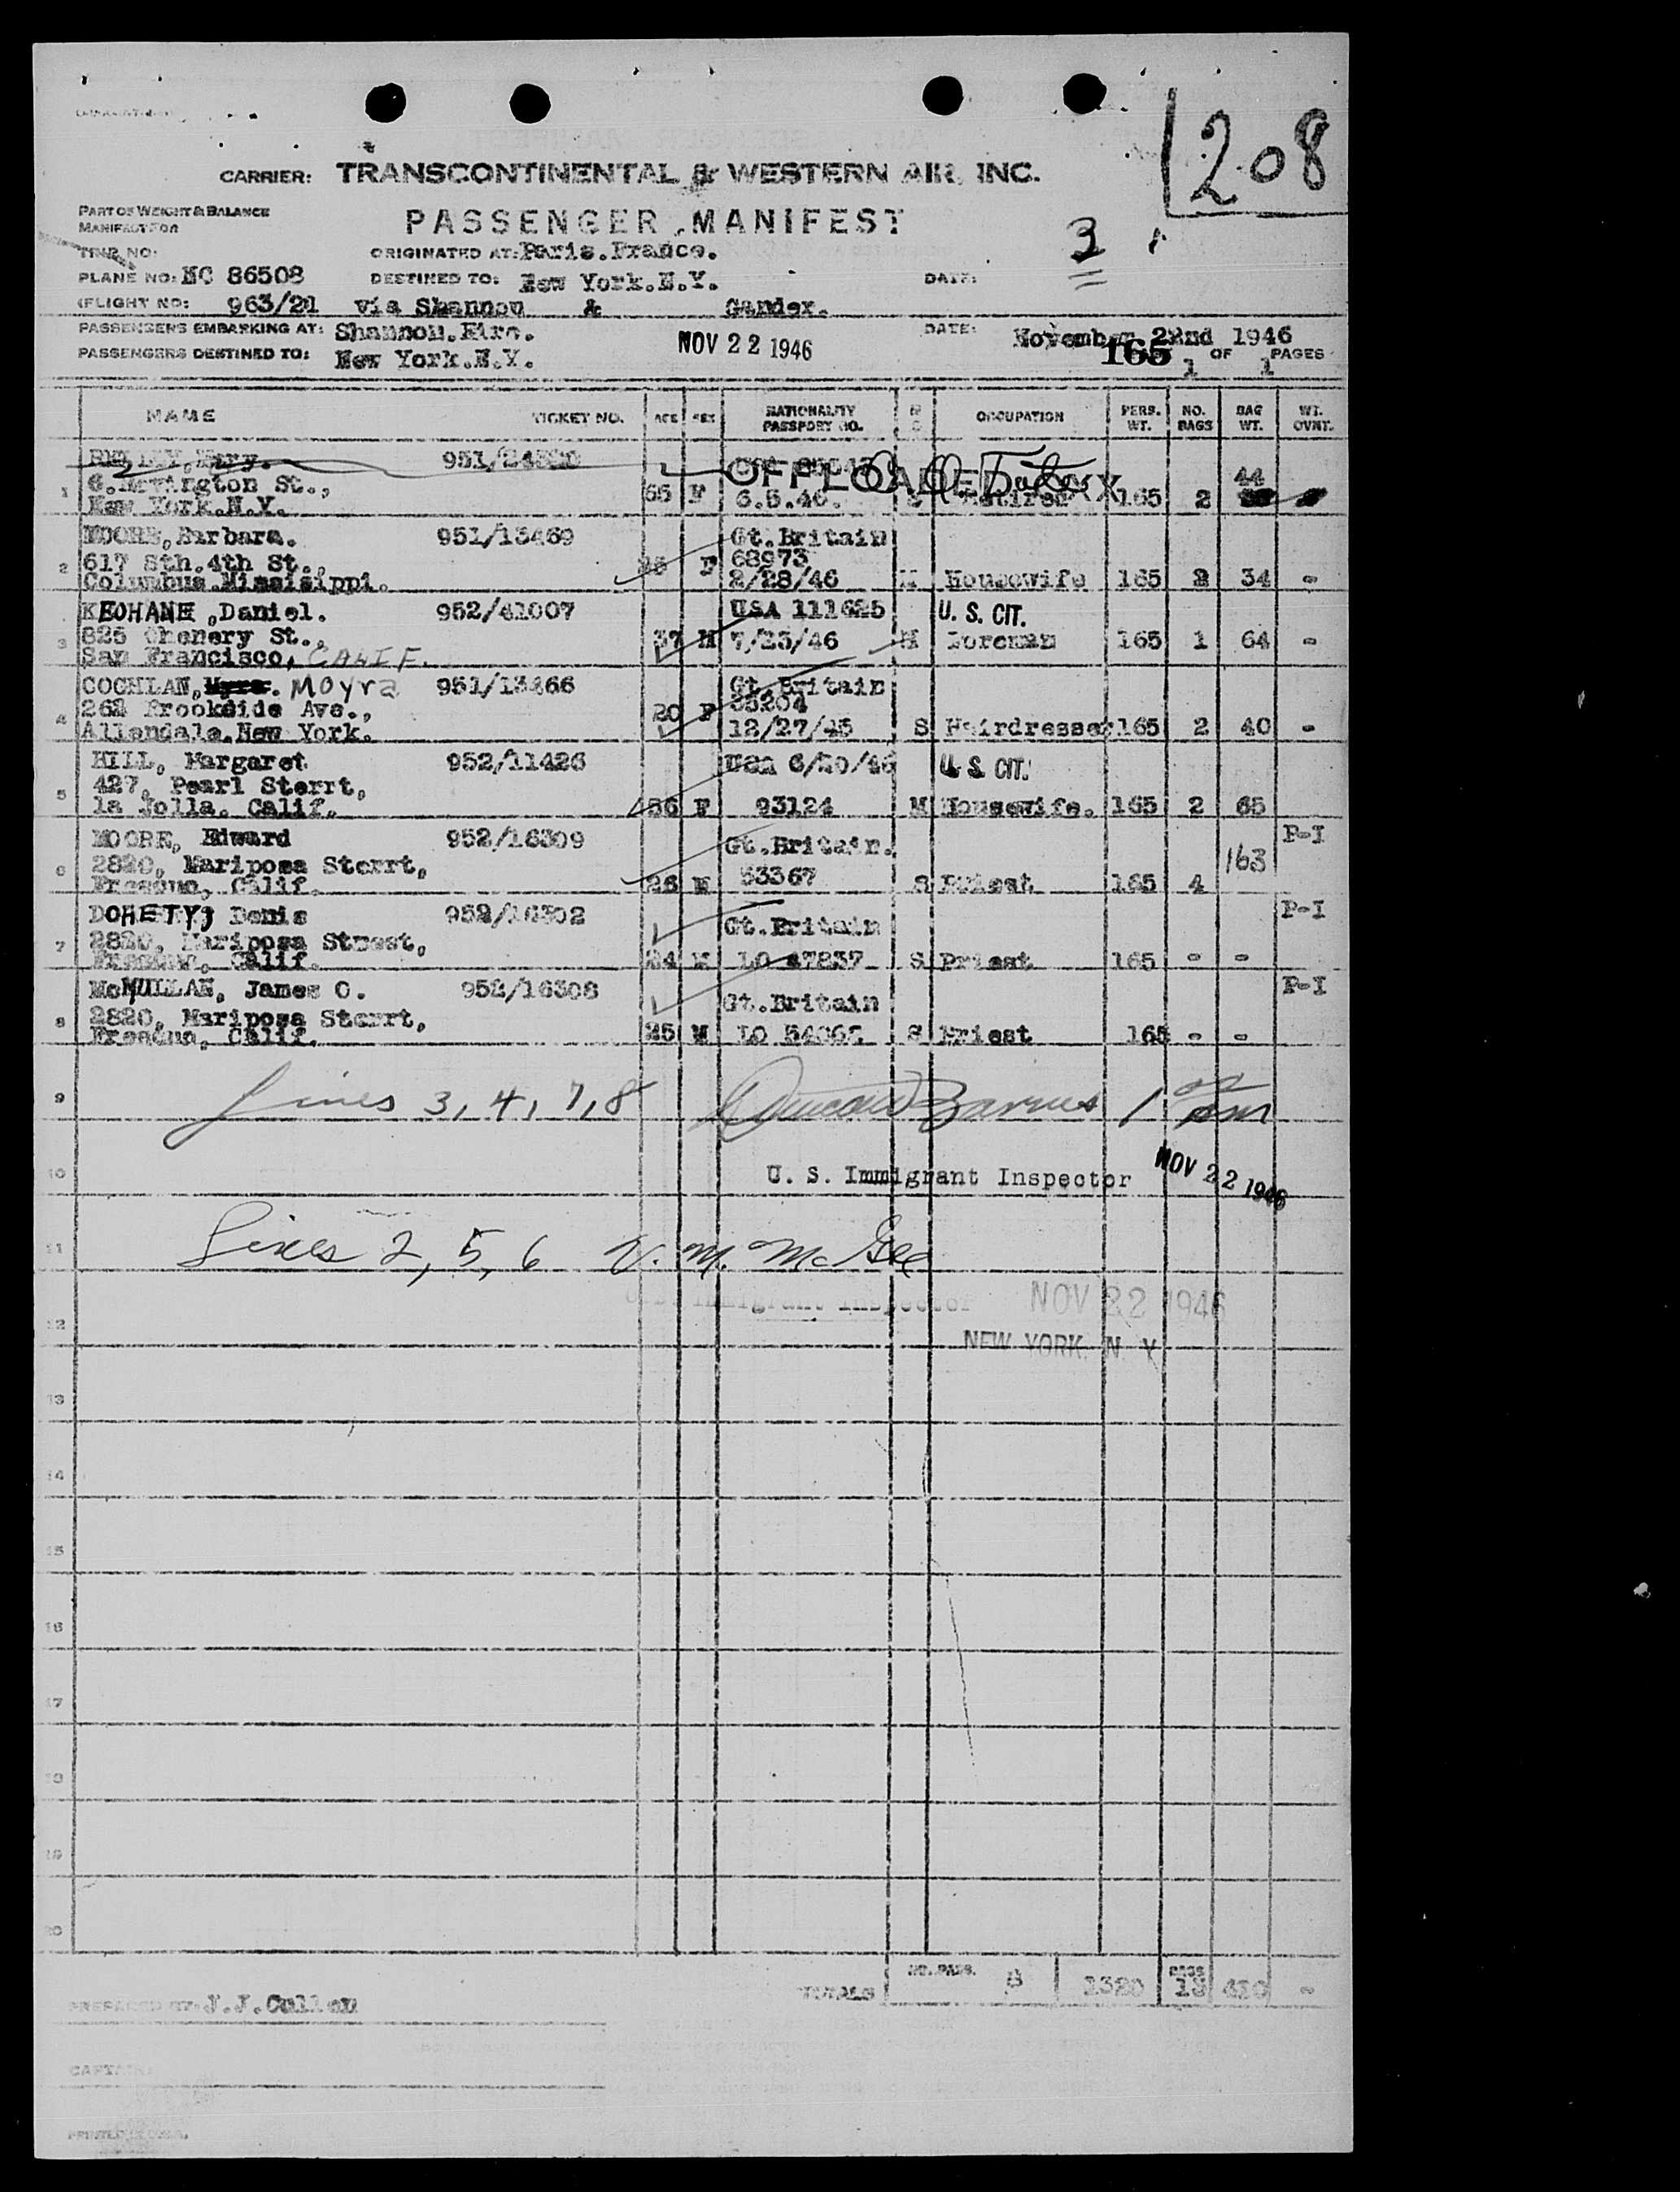 208
CARRIER: TRANSCONTINENTAL & WESTERN AIR, INC.
PART OF WEIGHT & BALANCE
MANIFEST FOR
PASSENGER MANIFEST
3
TRIP NO:
ORIGINATED AT: Paris.France.
PLANE NO: NC 86508
DESTINED TO: New York.N.Y.
DATE:
FLIGHT NO: 963/21 via Shannon & Gander.
PASSENGERS EMBARKING AT: Shannon.Eire.
NOV 22 1946
DATE: November 22nd 1946
PASSENGERS DESTINED TO: New York.N.Y.
165 1 OF 1 PAGES
NAME TICKET NO. AGE SEX NATIONALITY PASSPORT NO. OCCUPATION PERS. WT. NO. BAGS BAG WT. WT. OVNT.
Mary. 951/
OFFLOADED
44
1 6. St., 65 F 6.5.46. Retired 165 2
New York.N.Y.
MOORE,Barbara. 951/13469 Gt.Britain
2 617 Sth.4th St., F 68973
Columbus.Missisippi. 2/28/46 M Housewife 165 2 34 -
KEOHANE,Daniel. 952/41007 USA 111625 U. S. CIT.
3 825 Chenery St., 37 M 7/23/46 M Foreman 165 1 64 -
San Francisco, CALIF.
COGHLAN, Moyra 951/13466 Gt.Britain
4 262 Brookside Ave., 20 F 35204
Allandale.New York. 12/27/45 S Hairdresser 165 2 40 -
HILL, Margaret 952/11426 USA 6/20/46 U. S. CIT.
427, Pearl Sterrt,
5 la Jolla. Calif. 56 F 93124 M Housewife. 165 2 65
MOORE, Edward 952/16309 Gt.Britain. P-I
2820, Mariposa Sterrt, 163
6 Fresduo, Calif. 26 M 53367 S Priest 165 4
DOHETY, Denis 952/16302 Gt.Britain P-I
7 2820, Mariposa Street,
Calif. 24 M LO 47237 S Priest 165 - -
McMULLAN, James O. 952/16308 Gt.Britain P-I
8 2820, Mariposa Sterrt,
Calif. 25 M LO S Priest 165 - -
9 Lines 3, 4, 7, 8 Barnes
10 U. S. Immigrant Inspector NOV 22 1946
11 Lines 2, 5, 6 V. M. McGee
U. S. Immigrant Inspector NOV 22 1946
12 NEW YORK, N. Y.
13
14
15
16
17
18
19
20
TOTALS NO. PASS. 8 1320 BAGS 13 410 -
PREPARED BY: J.J.Cullen
CAPTAIN: